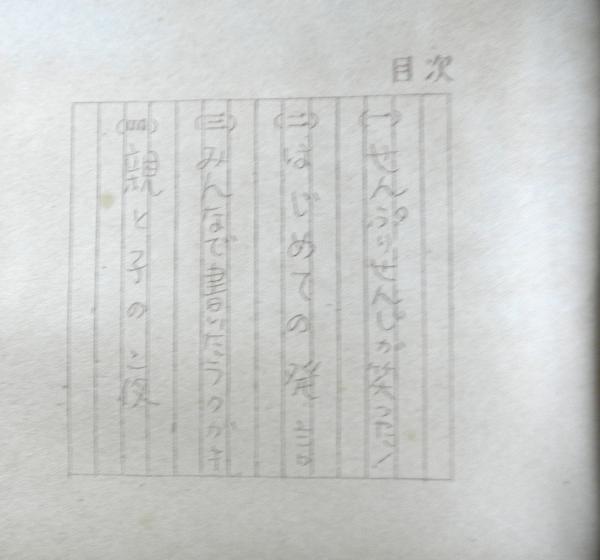 目次
(一) せんぷりせんじが笑った!
(二) はじめての発言
(三) みんなで書いたらくがき
(四) 親と子の夜